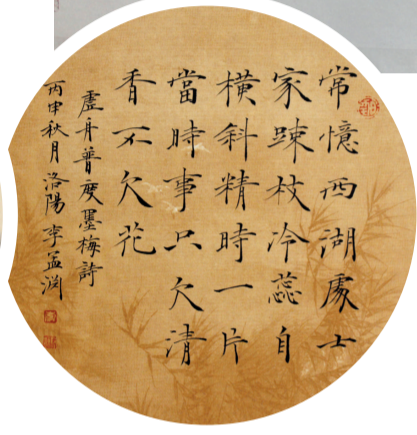 常憶西湖處士
家踈枝冷蕊自
橫斜精時一片
當時事只欠清
香不欠花
虛舟普度墨梅詩
丙申秋月洛陽李孟渊